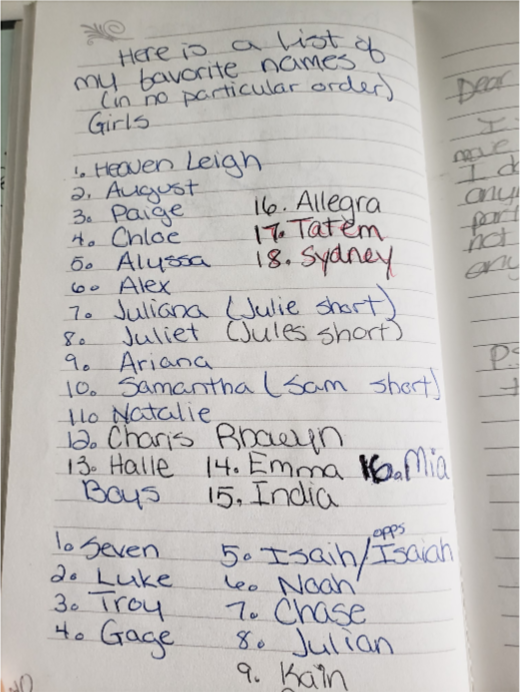 Here is a list of
my favorite names
(in no particular order)
Girls
1. Heaven Leigh
2. August
3. Paige
4. Chloe
5. Alyssa
6. Alex
7. Juliana (Julie short)
8. Juliet (Jules short)
9. Ariana
10. Samantha (Sam short)
11. Natalie
12. Charis
13. Halle
14. Emma
15. India
16. Mia
16. Allegra
17. Tatem
18. Sydney
Boys
1. Seven
2. Luke
3. Troy
4. Gage
5. Isaih/Isaiah
opps
6. Noah
7. Chase
8. Julian
9. Kain
Dear
I
move
not
PS